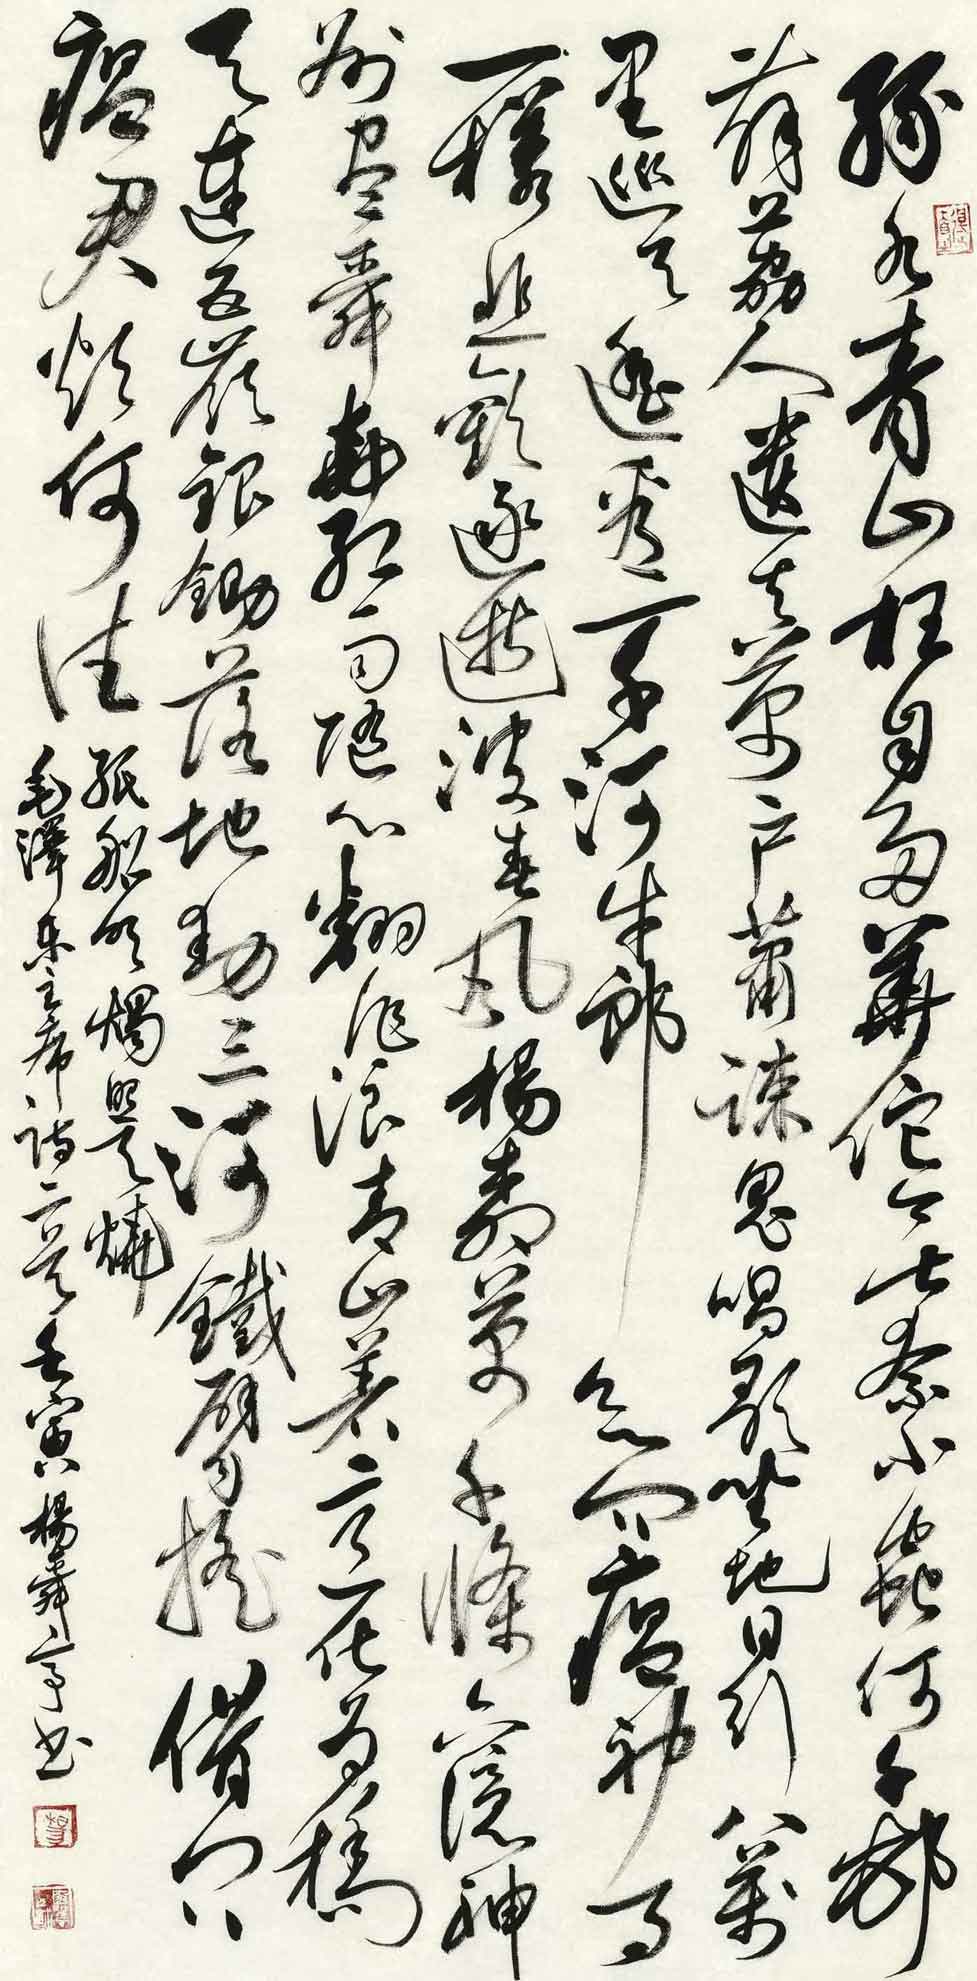 綠水青山枉自多華佗無奈小蟲何千邨
薜荔人遺矢萬户蕭疎鬼唱歌坐地日行八萬
里巡天遥看一千河牛郎欲問瘟神事
一樣悲歡逐逝波春風楊柳萬千條六億神
州盡舜堯紅雨隨心翻作浪青山着意化為橋
天連五嶺銀鋤落地動三河鐵臂搖借問
瘟君欲何往
紙船明燭照天燒
毛澤東主席詩二首壬寅楊舜亭书